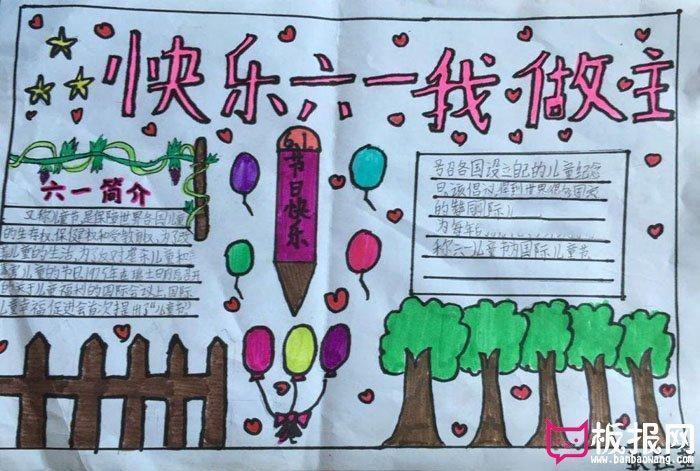 快乐六一我做主
6.1
节日快乐
六一简介
又称儿童节,是保障世界各国儿童
的生存权、保健权和受教育权,为了改
善儿童的生活,为了反对虐杀儿童和
儿童的节日1925年在瑞士日内瓦召开
的关于儿童福利的国际会议上国际
儿童幸福促进会首次提出了"儿童节"
号召各国设立自己的儿童纪念
日,该倡议得到世界很多国家
的
为每年
称六一儿童节为国际儿童节
板报网
www.banbaowang.com